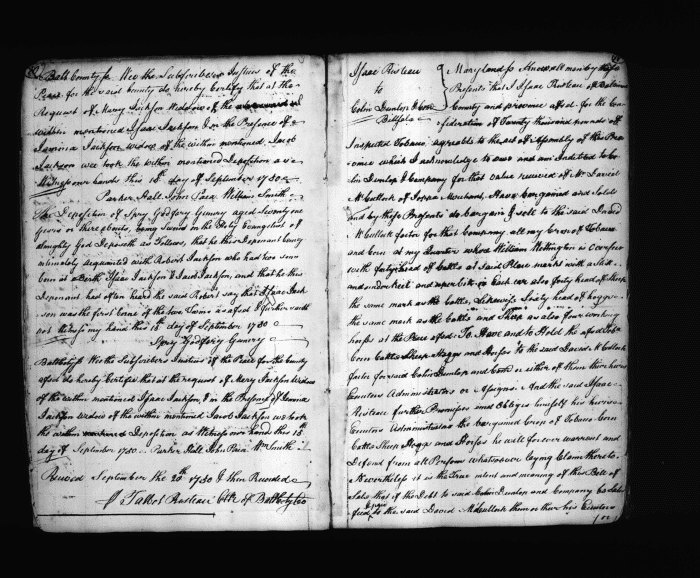 Balt County ss We the Subscribers Justices of the
Peace for the said County do hereby Certify that at the
Request of Mary Jackson Widdow of the
within mentioned Isaac Jackson & in the Presence of
Jemima Jackson widow of the within mentioned Jacob
Jackson wee took the within mentioned Deposition as
Witness our hands this 18th day of September 1750
Parker Hall John Paca William Smith
The Deposition of Spry Godfrey Gundry aged Seventy one
years or thereabouts, being Sworn on the Holy Evangelist of
almighty God Deposeth as follows, that he this Deponant being
intimately acquainted with Robert Jackson who had two sons
born at a birth Isaac Jackson & Jacob Jackson, and that he this
Deponant had often heard the said Robert say that Isaac Jack
son was the first borne of the two Sons aforesd & further saith
not Witness my hand this day of September 1750
Spry Godfrey Gundry
Balt County ss We the Subscribers Justices of the Peace for the County
aforesd do hereby Certifie that at the request of Mary Jackson Widdow
of the within mentioned Isaac Jackson, & in the Presence of Jemima
Jackson widow of the within mentioned Jacob Jackson we took
the within Deposition as Witness our hands this
day of September 1750. Parker Hall John Paca Wm Smith
Received September the 20th 1750 & then Recorded
Talbot Risteau Clk of Balt County
Isaac Risteau
to
Colin Dunlop & Com
Bill Sale
Maryland ss Know all men by these
Presents that I Isaac Risteau of Baltimore
County and province aforsd for the Con
sideration of Twenty thousand pounds of
Inspected Tobacco agreable to the act of Assembly of this Prov
ince which I acknowledge to owe and am Indebted to Co
lin Dunlop & Company for that value received of Mr David
McCullock of Joppa Merchant, Have bargained and sold
and by these Presents do bargain & sell to the said David
McCullock factor for that Company all my Crop of Tobacco
and Corn at my Quarter where William Nottington is Overseer
with forty head of Cattle at said Place markt with a Slit
and under bit and upper bit in Each ear also forty head of Sheep
the same mark as the Cattle, Likewise Sixty head of hoggs
the same mark as the Cattle and Sheep as also four working
horses at the Place aforsd To Have and to Hold the aforsd Tobo
Corn Cattle Sheep Hoggs and Horses to the said David McCullock
factor for said Colin Dunlop and Comd or either of them their heirs
Executors Administrators or Assigns. And the said Isaac
Risteau further Promises and Obliges himself his heires
Executors Administrators the bargained Crop of Tobacco Corn
Cattle Sheep Hoggs and Horses he will forever warrant and
Defend from all Persons whatsoever laying Claim thereto
Nevertheless it is the True intent and meaning of this Bill of
Sale that if the Debt to said Colin Dunlop and Company be
paid to the said David McCullock them or their his Executors